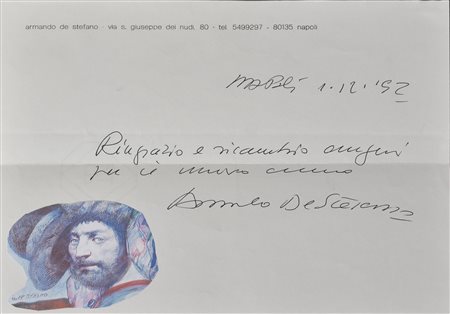 armando de stefano - via s. giuseppe dei nudi, 80 - tel 5499297 - 80135 napoli
Napoli 1.12.'92
Ringrazio e ricambio auguri
per il nuovo anno
Armando De Stefano